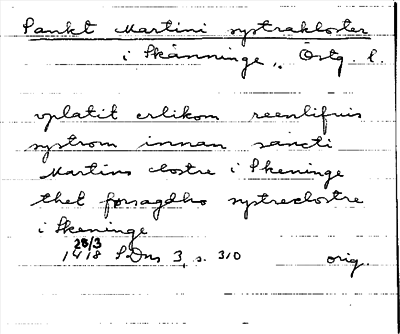 Sankt Martini systrakloster
i Skänninge, Östg. l.
vplatit erlikom reenlifuis
systrom innan sancti
Martins clostre i Skeninge
thet forsagdho systreclostre
i Skeninge
28/3
1418 SDns 3, s. 310 orig.